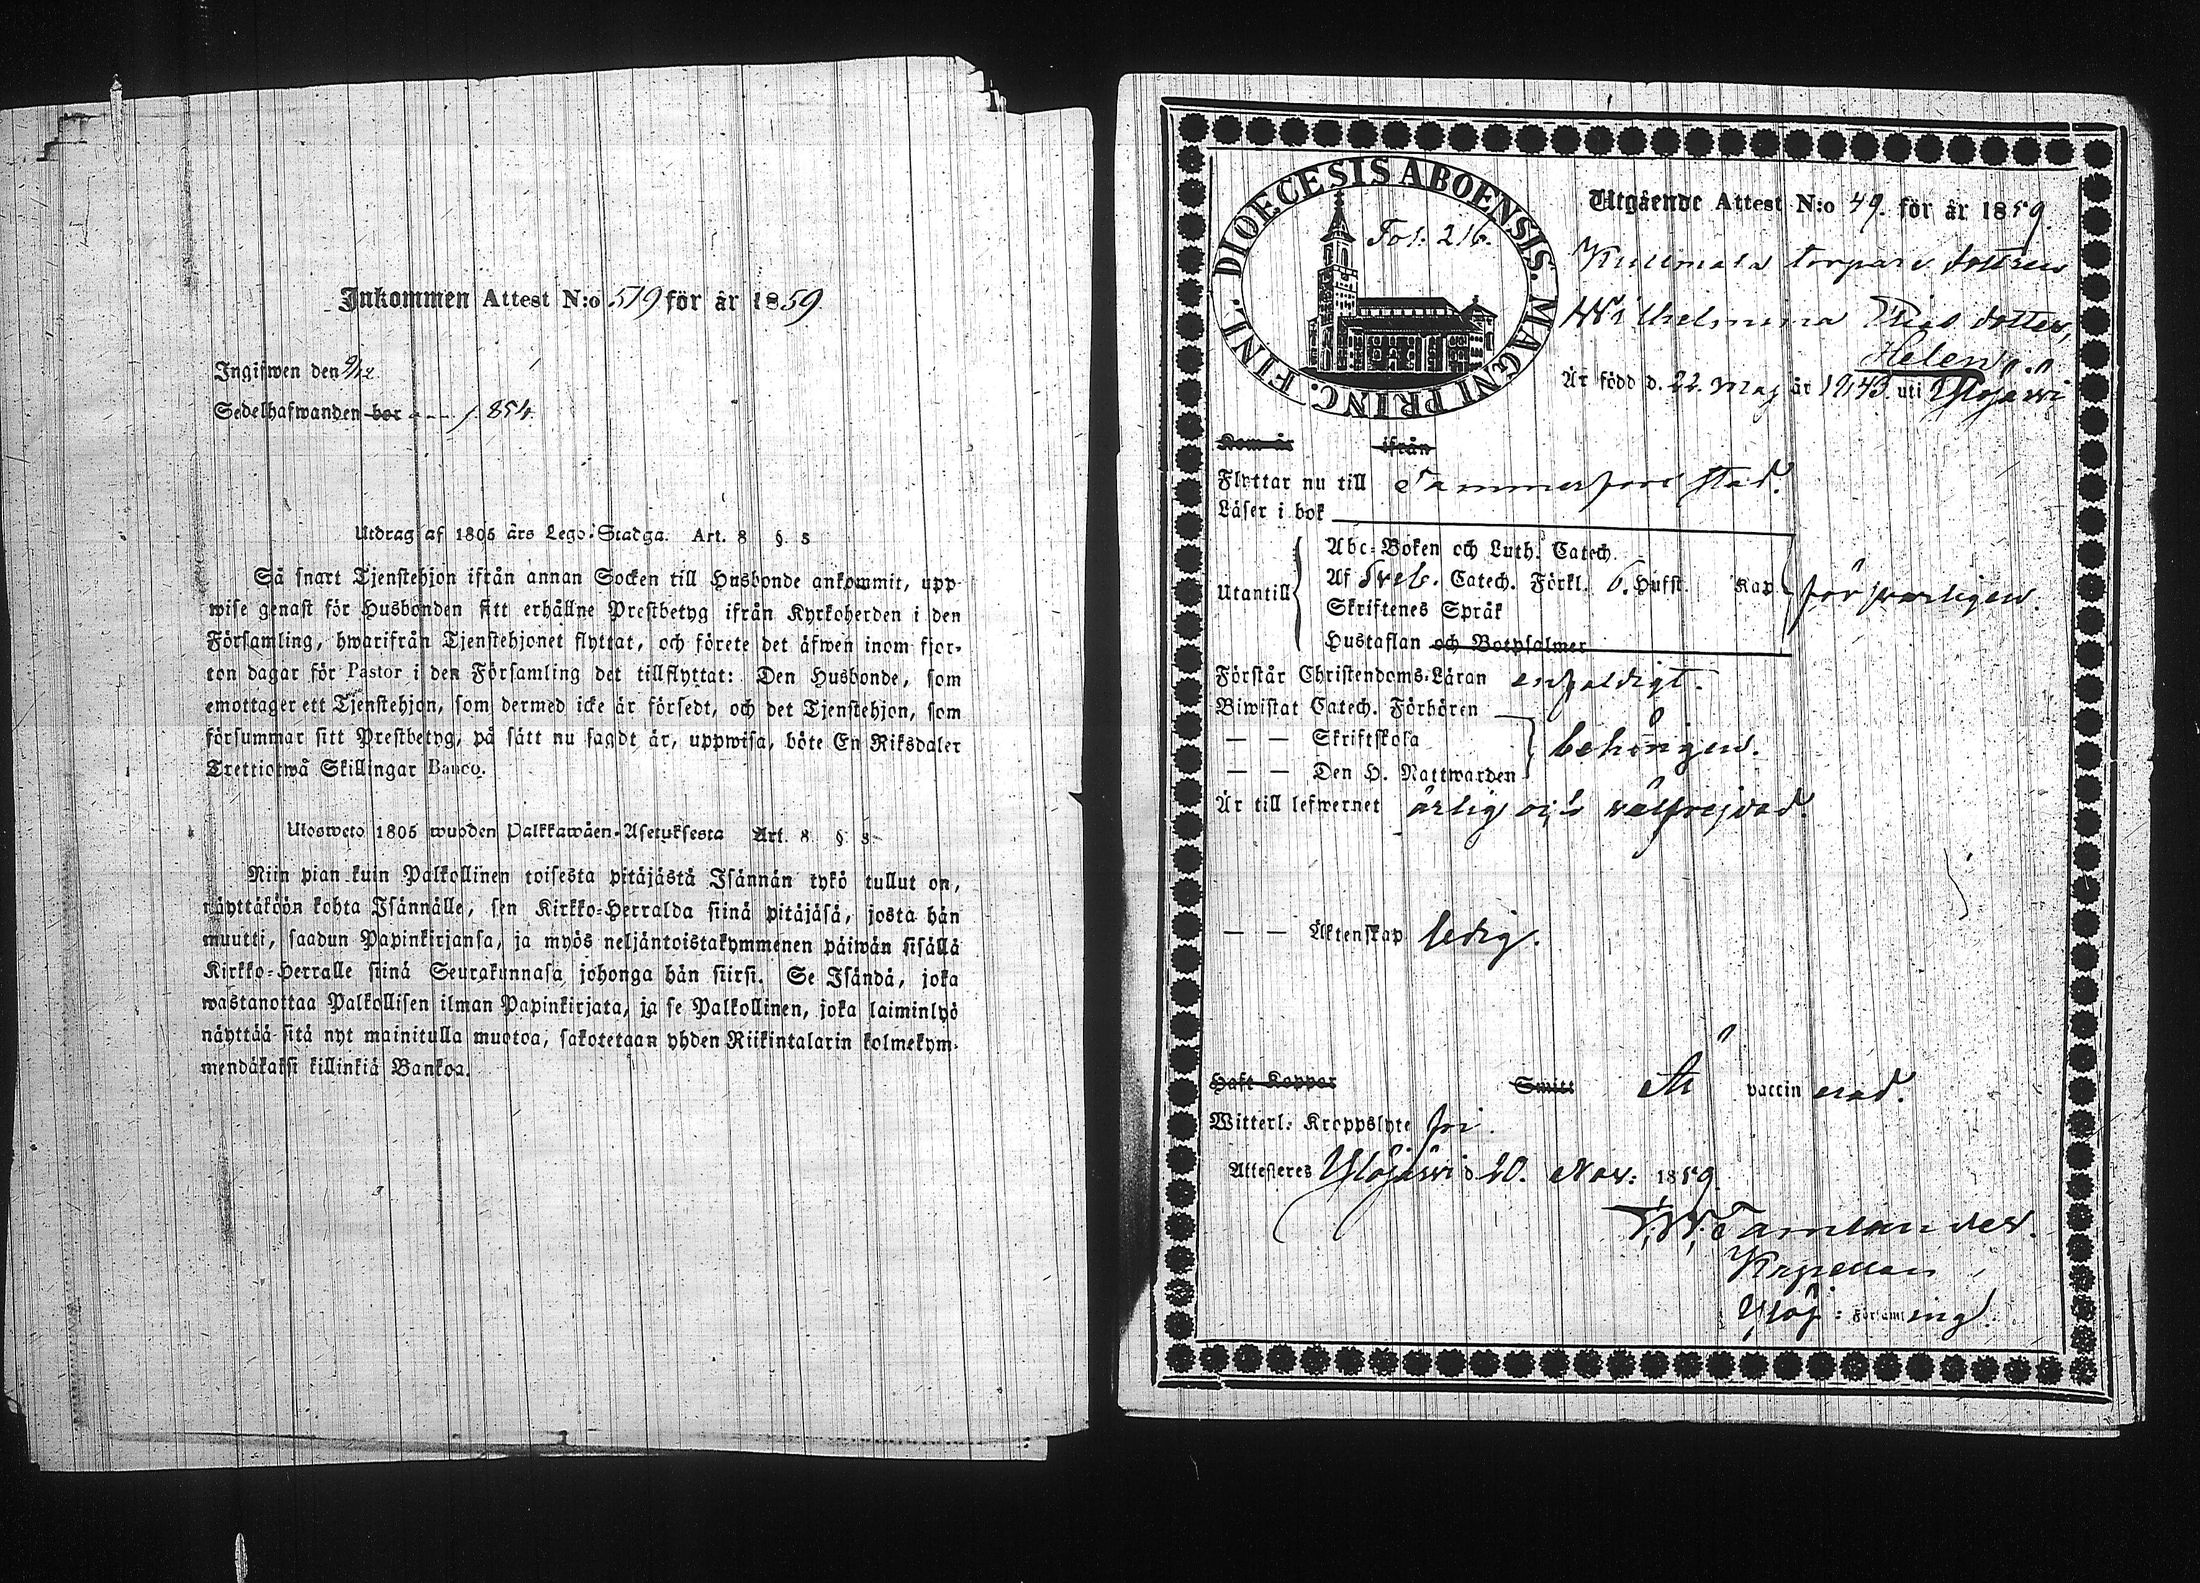 Inkommen Attest N:o 519 för år 1859.
Ingifwen den 2/12
Sedelhafwanden bor - - - 854.
Utdrag af 1805 års Lego-Stadga. Art. 8 §. 8
Så snart Tjenstehjon ifrån annan Socken till Husbonde ankommit, upp-
wise genast för Husbonden sitt erhållne Prestbetyg ifrån Kyrkoherden i den
Församling, hwarifrån Tjenstehjonet flyttat, och förete det äfwen inom fjor-
ton dagar för Pastor i den Församling det tillflyttat: Den Husbonde, som
emottager ett Tjenstehjon, som dermed icke är försedt, och det Tjenstehjon, som
försummar sitt Prestbetyg, på sätt nu sagdt är, uppwisa, böte En Riksdaler
Trettiotwå Skillingar Banco.
Ulosweto 1805 wuoden Palkkawäen-Asetuksesta Art. 8 §. 8
Niin pian kuin Palkollinen toisesta pitäjästä Isännän tykö tullut on,
näyttäköön kohta Isännälle, sen Kirkko-Herralda siinä pitäjäsä, josta hän
muutti, saadun Papinkirjansa, ja myös neljäntoistakymmenen päiwän sisällä
Kirkko-Herralle siinä Seurakunnasa johonga hän siirsi. Se Isändä, joka
wastanottaa Palkollisen ilman Papinkirjata, ja se Palkollinen, joka laiminlyö
näyttää sitä nyt mainitulla muotoa, sakotetaan yhden Riikintalarin kolmekym-
mendäkaksi killinkiä Bankoa.
DIOECESIS ABOENSIS. MAGNI PRINC. FINL.
Fol. 216.
Utgående Attest N:o 49. för år 1859.
torpare dottren
Wilhelmina dotter,
Helen
Är född d. 22. Maj år 1843 uti Ylöjärwi
Kom år ifrån
Flyttar nu till Tammerfors stad.
Läser i bok
Utantill
Abc-Boken och Luth. Catech.
Af Sveb. Catech. Förkl. 6. Hufst. Kap
Skriftenes Språk
Hustaflan och Botpsalmer
försvarligen.
Förstår Christendoms-Läran enfaldigt.
Biwistat Catech. Förhören
— — Skriftskola
— — Den H. Nattwarden
behörigen.
Är till lefwernet ärlig och välfrejdad.
— — Äktenskap ledig.
Haft Koppor Smitt Är vaccinerad.
Witterl. Kroppslyte fri.
Attesteres Ylöjärwi d 20. Nov: 1859.
Tamlander.
Kapellan
Ylöj: Församling